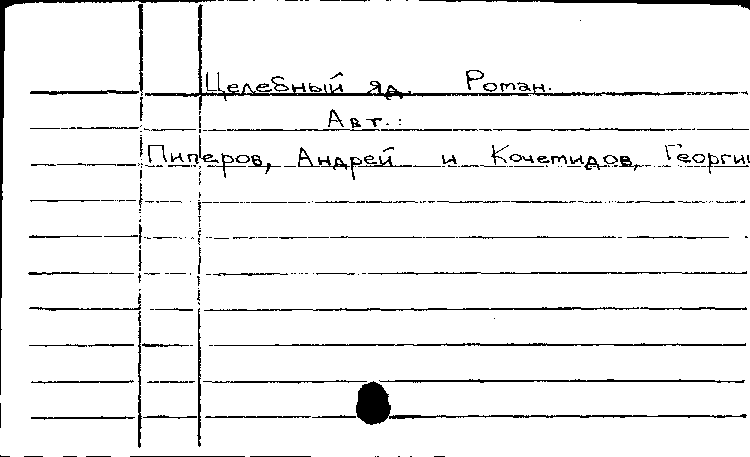 Целебный яд. Роман.
Авт.:
Пиперов, Андрей и Кочемидов, Георги